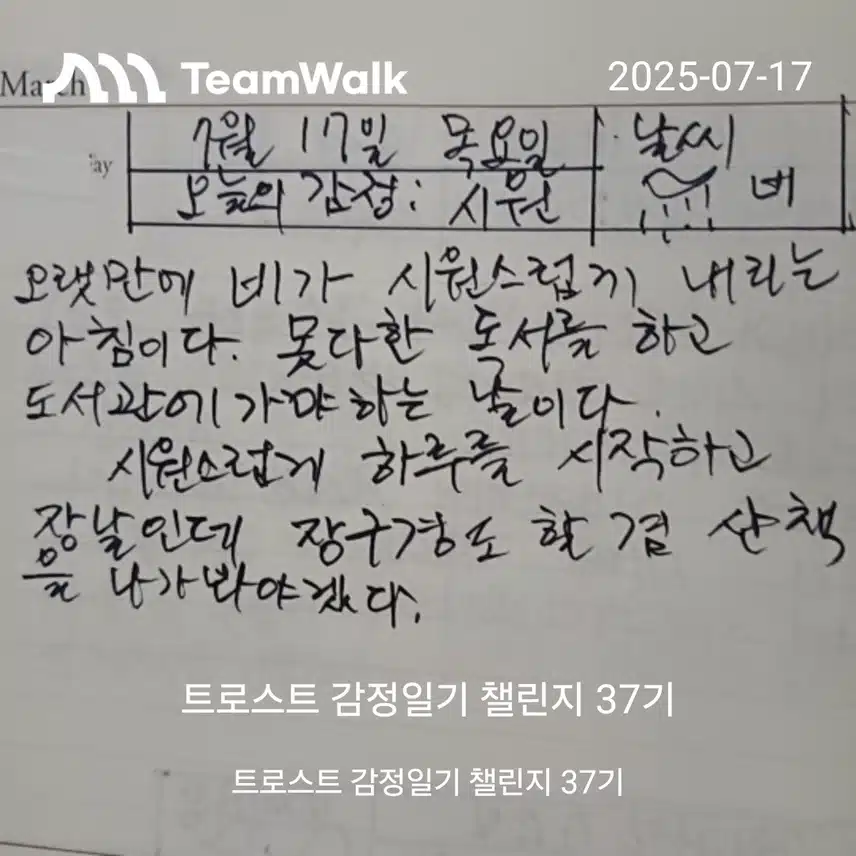 March
TeamWalk
2025-07-17
7월 17일 목요일
날씨
오늘의 감정: 시원
비
오랫만에 비가 시원스럽게 내리는
아침이다. 못다한 독서를 하고
도서관에 가야 하는 날이다.
시원스럽게 하루를 시작하고
장날인데 장구경도 할 겸 산책
을 나가봐야겠다.
트로스트 감정일기 챌린지 37기
트로스트 감정일기 챌린지 37기